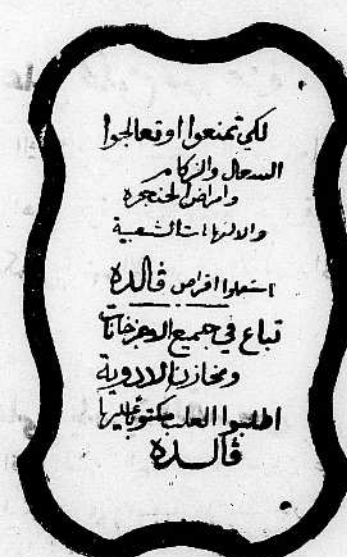 لكي تمنعوا او تعالجوا
السعال والزكام
وامراض الحنجره
والالتهابات الشعبية
استعملوا اقراص ڤالده
تباع في جميع الاجزخانات
ومخازن الادوية
اطلبوا العلب مكتوبا عليها
ڤالده